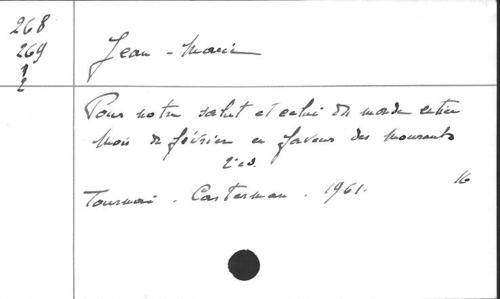 268
269
1
2
Jean-Marie
Pour notre salut et celui du monde entier
Mois de février en faveur des mourants
2e éd.
Tournai. Casterman. 1961.
16